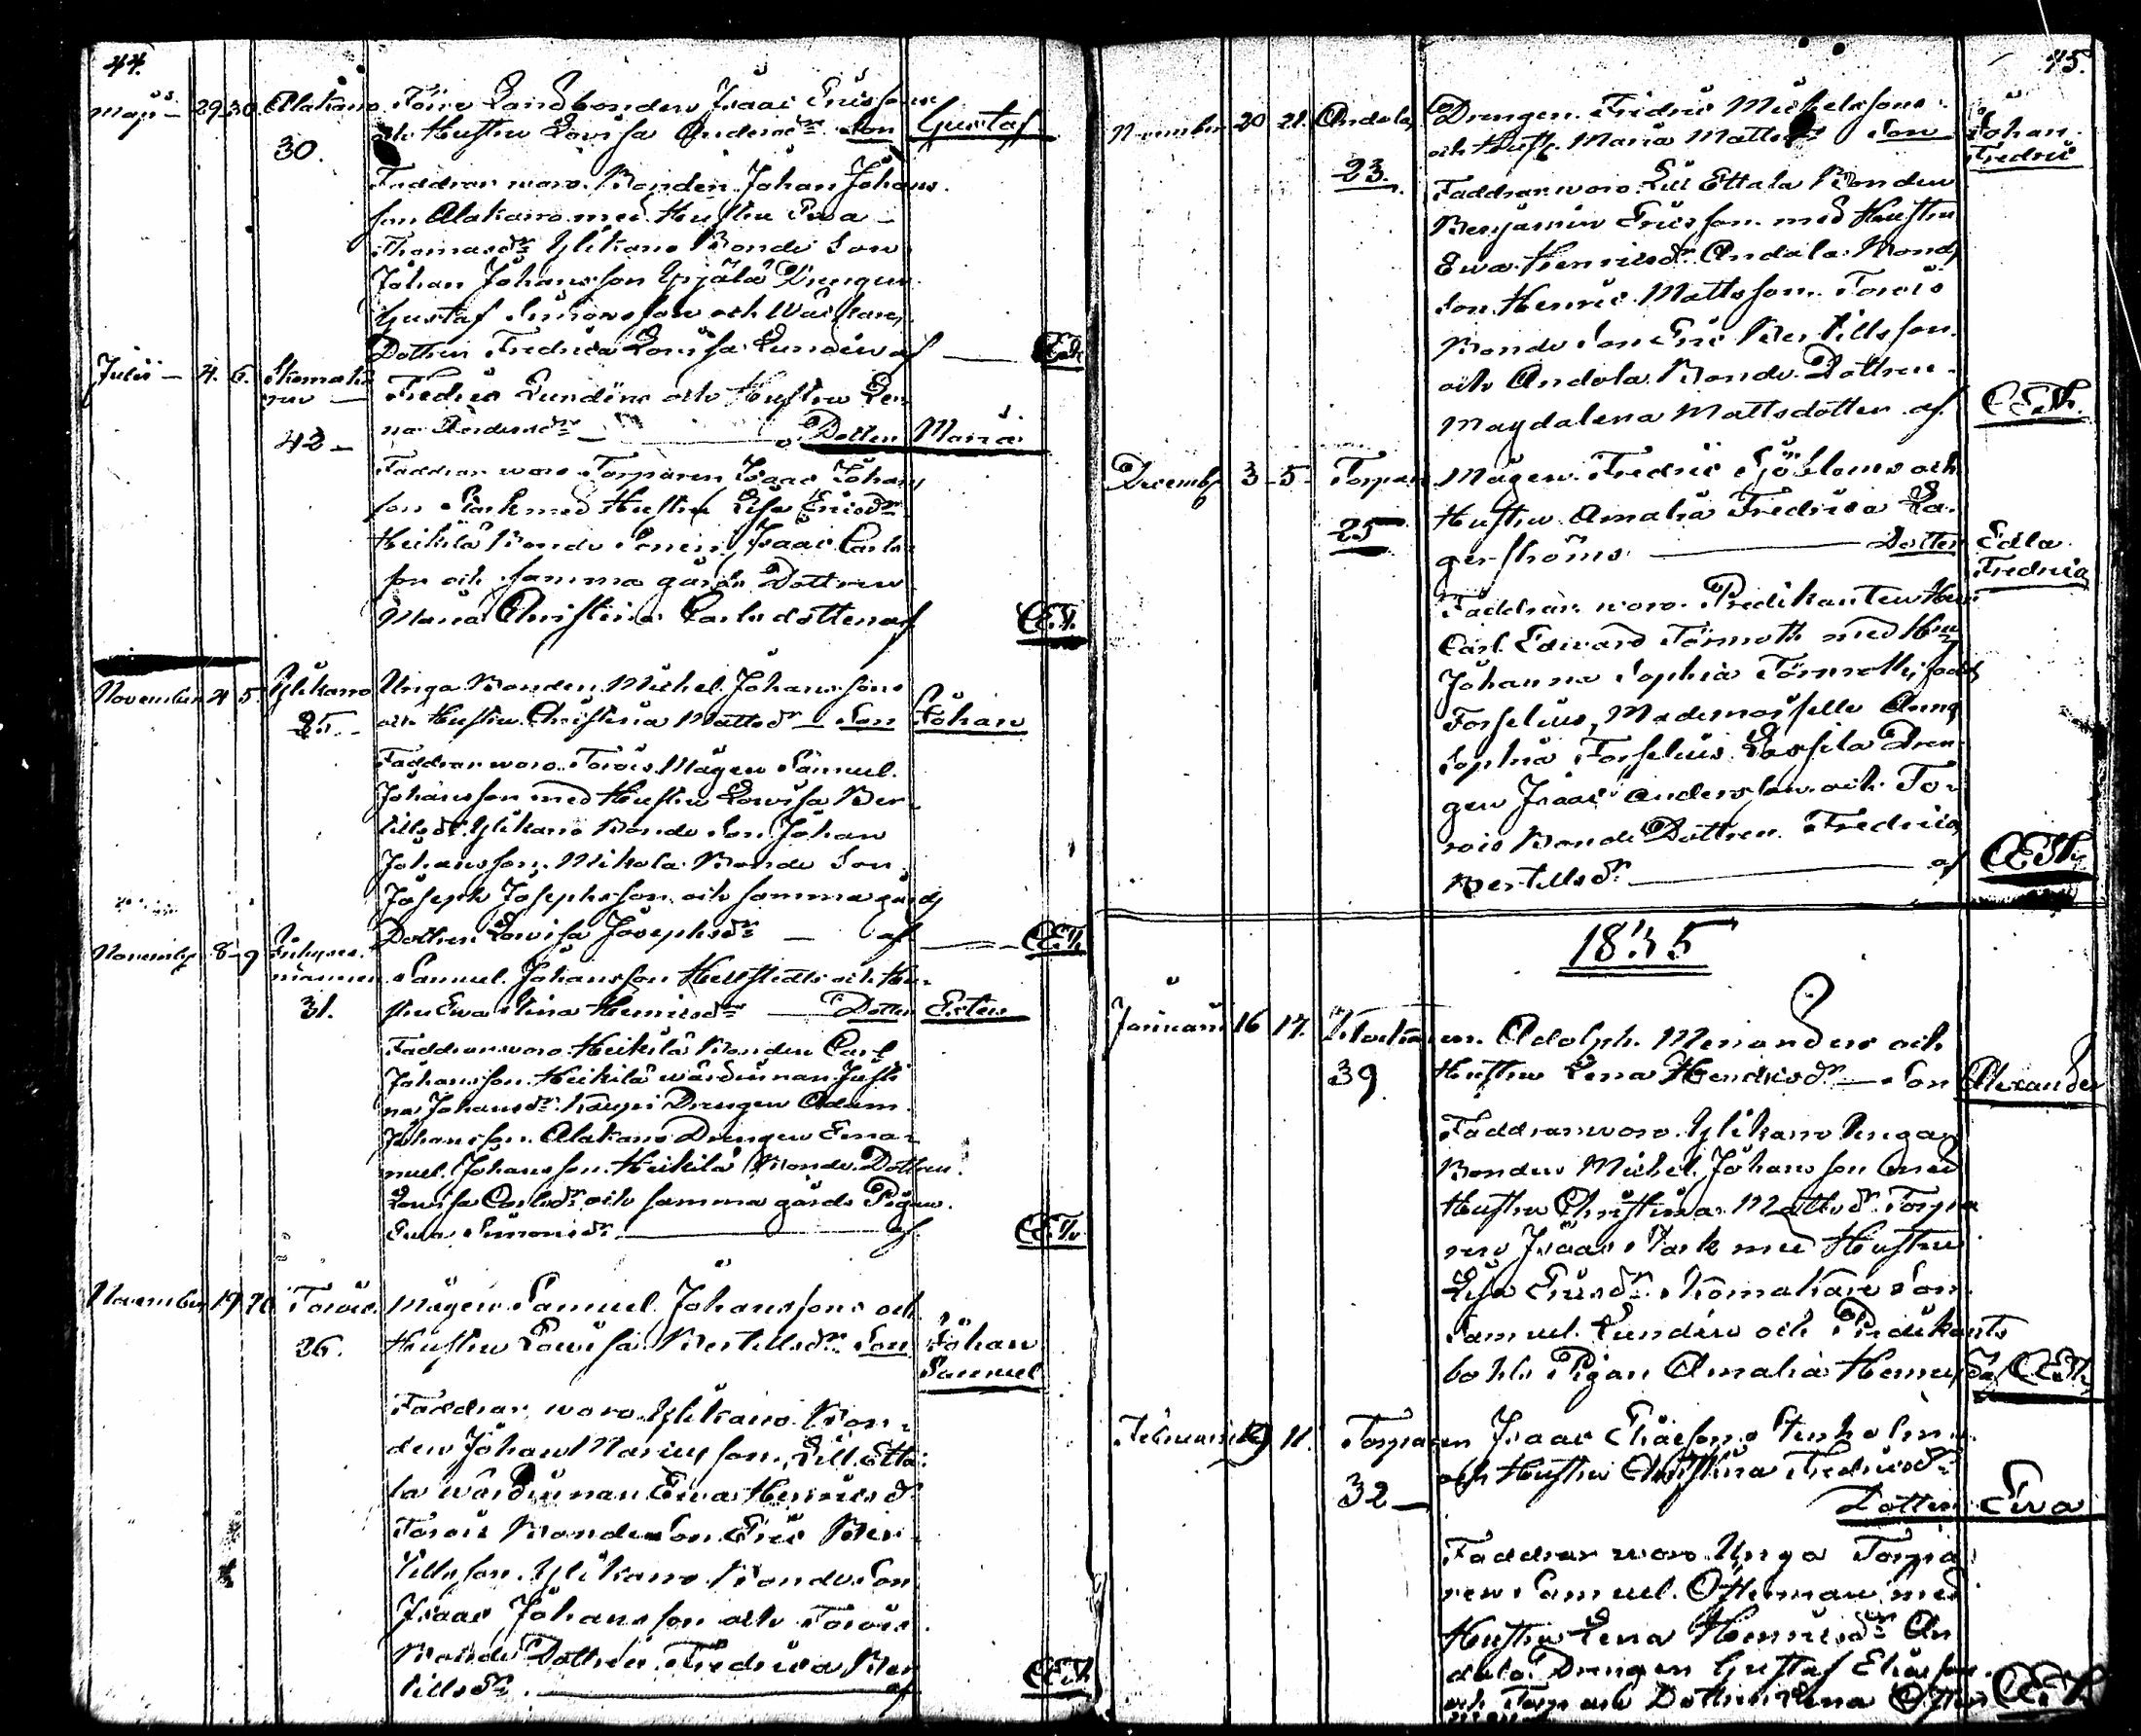 44.
Maji 29 30 Alakano Förre Landbonden Isaac Ericssons
och Hustru Lovisa Andersdr Son Gustaf
30.
Faddrar woro Bonden Johan Johans
son Alakano med Hustru Ewa
Thomasdr Ylikano Bonde Son
Johan Johansson Yrjälä Drengen
Gustaf Simonsson och
Dottren Fredrica Lovisa Lundén af
Julii 4. 6. Skomaka
ren Fredric Lundéns och Hustru Le
na Andersdr Dotter Maria
42
Faddrar woro Torparen Isaac Johans
son Stark med Hustru Lisa Ericsdr
Heikilä Bonde Sonen Isaac Carls
son och samma gårds Dottren
Maria Christina Carlsdotter af CET.
November 4 5. Ylikano Unga Bonden Michel Johanssons
och Hustru Christina Mattsdr Son Johan
25.
Faddrar woro Torois Mågen Samuel
Johansson med Hustru Lovisa Ber
tillsdr Ylikano Bonde Son Johan
Johansson, Mikola Bonde Son
Joseph Josephsson och samma gårds
Dottren Lovisa Josephsdr af CET.
Novembr 8 9 Inhyses
mannen Samuel Johansson Hellstedts och Hu
stru Ewa Stina Henricsdr Dotter Ester
31.
Faddrar woro Heikilä Bonden Carl
Johansson Heikilä wärdinnan Justi
na Johansdr Kaupi Drengen Adam
Johansson Alakano Drengen Ema
nuel Johansson Heikilä Bonde Dottren
Lovisa Carlsdr och samma gårds Pigan
Ewa Simonsdr af CET.
November 19 20 Torois Mågen Samuel Johanssons och
Hustru Lovisa Bertillsdr Son Johan
Samuel
26.
Faddrar woro Ylikano Bon
den Johan Mariusson, Lill Etta
la wärdinnan Ewa Henricsdr
Torois Bonde Son Eric Ber
tillsson, Ylikano Bonde Son
Isaac Johansson och Torois
Bonde Dottren Fredrica Ber
tillsdr af CET.
45.
November 20 21. Andola Drengen Fredric Michelssons
och Hust. Maria Mattsdr Son Johan
Fredric
23.
Faddrar woro Lill Ettala Bonden
Benjamin Ericsson med Hustru
Ewa Henricsdr Andola Bonde
Son Henric Mattsson Torois
Bonde Son Eric Bertillsson
och Andola Bonde Dottren
Magdalena Mattsdotter af CET.
Decembr 3 5 Torpare Mågen Fredric Sjöbloms och
Hustru Amalia Fredrica La
gerströms Dotter Edla
Fredrica
25
Faddrar woro Predikanten Herr
Carl Edward Törnroth med Hu
Johanna Sophia Törnroth, född
Forselius, Mademoiselle Anna
Sophia Forselius Lassila Dren
gen Isaac Andersson och To
rois Bonde Dottren Fredrica
Bertillsdr af CET.
1835
Januarii 16 17. Klockaren Adolph Menanders och
Hustru Lena Henricsdr Son Alexander
39
Faddrar woro Ylikano Unga
Bonden Michel Johansson med
Hustru Christina Mattsdr Torpa
ren Isaac Stark med Hustru
Lisa Ericsdr Skomakare Son
Samuel Lundén och Predikants
bohls Pigan Amalia CET.
Februarii 11. Torparen Isaac Eliaesons Stenholms
och Hustru Christina Fredricsdr
Dotter Ewa
32
Faddrar woro Unga Torpa
ren Samuel Österman med
Hustru Lena Henricsdr An
dola Drengen Gustaf Eliasson
och Torpare Dottren Lena Öster